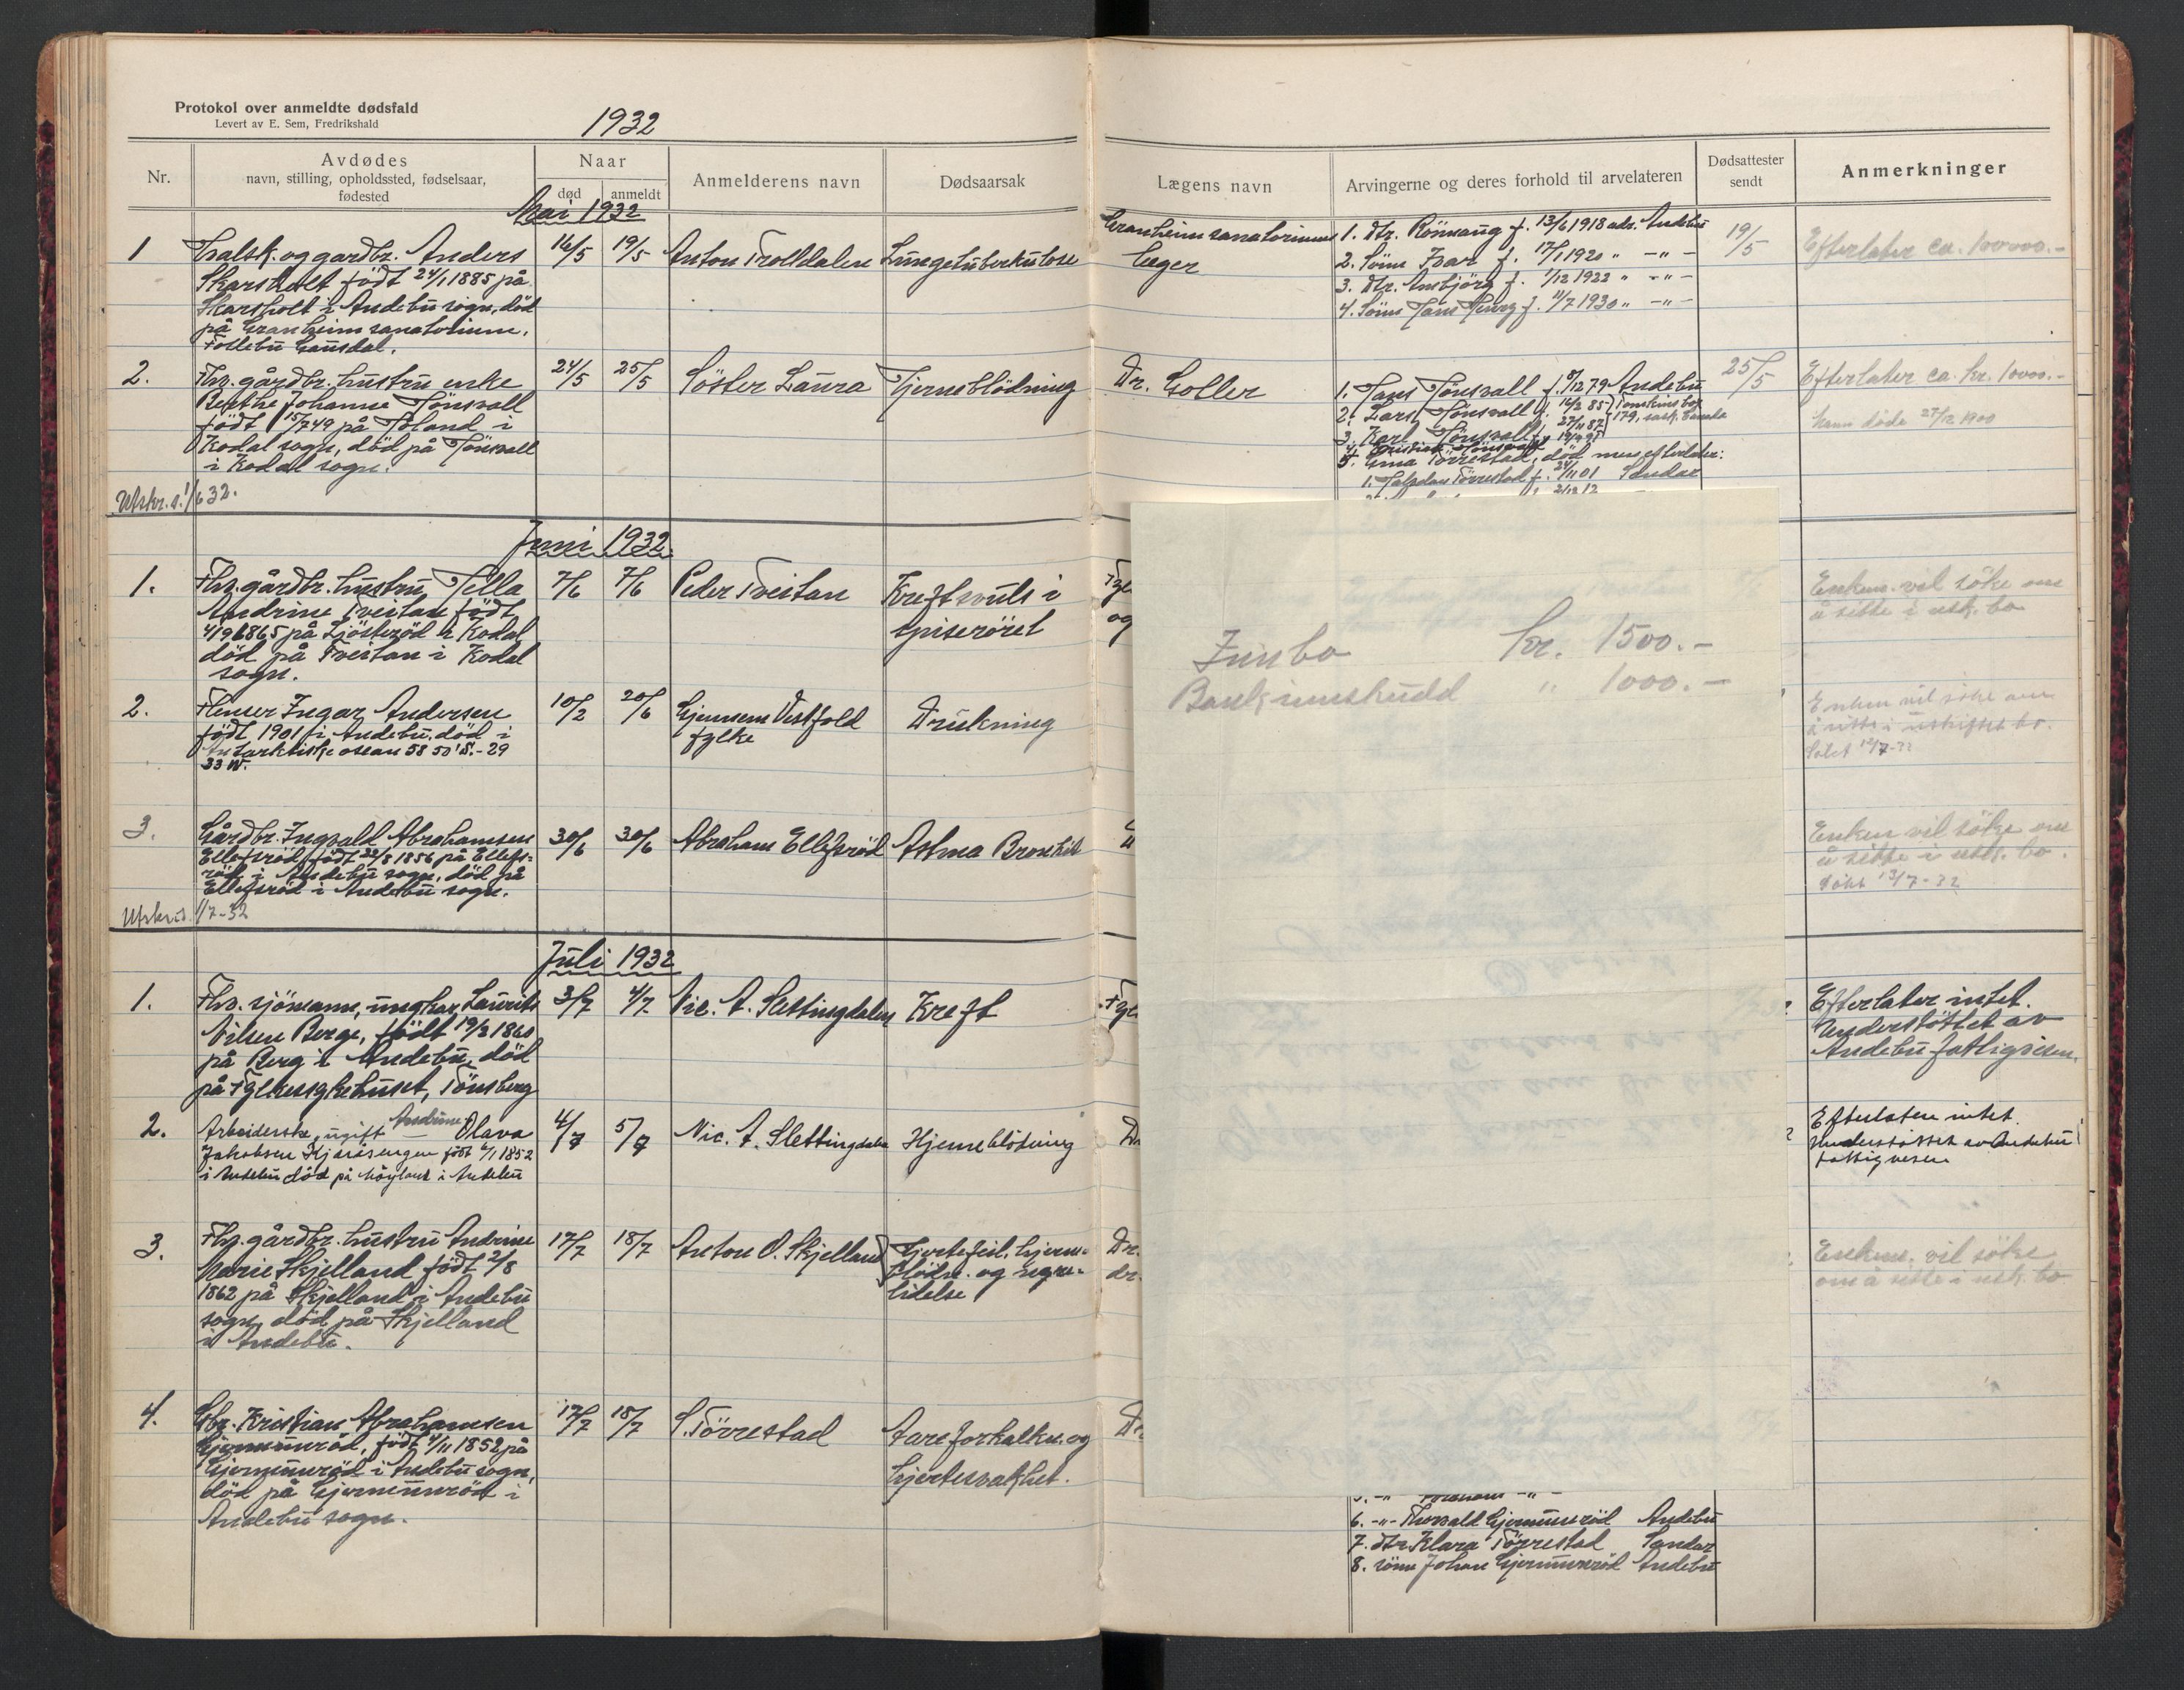 Protokol over anmeldte dødsfald
Levert av E. Sem, Fredrikshald
1932
Nr.
Avdødes
navn, stilling, opholdssted, fødselsaar,
fødested
Naar
død
anmeldt
Anmelderens navn
Dødsaarsak
Lægens navn
Arvingerne og deres forhold til arvelateren
Dødsattester
sendt
Anmerkninger
Mai 1932
1
Hvalsk. og gardbr. Anders
Skarsholt født 24/1 1885 på
Skarsholt i Andebu sogn, død
på Granheim sanatorium,
Follebu Gausdal.
16/5
19/5
Anton Trolldalen
Lungetuberkulose
Granheim sanatoriums
læger
1. Dtr. Rønnaug f. 13/6 1918 adr. Andebu
2. Sønn Ivar f. 17/1 1920 " -"-
3. Dtr. Ansbjørg f. 1/12 1922 " -"-
4. Sønn Hans f. 11/7 1930 " -"-
19/5
Efterlater ca. 100000.-
2.
Fhv. gårdbr. hustru enke
Berthe Johanne Hønsvall
født 15/7 49 på Håland i
Kodal sogn, død på Hønsvall
i Kodal sogn.
24/5
25/5
Søster Laura
Hjerneblødning
Dr. Goller
1. Hans Hønsvall f. 9/12 79 Andebu
2. Lars Hønsvall f. 14/2 85
3. Karl Hønsvall f. 27/11 87
5. Gina Tørrestad, død men efterlater:
1. Halvdan Tørrestad f. 24/11 01 Sandar
25/5
Efterlater ca. kr. 10000.-
Mann døde 27/12 1900
Utskr. s. 1/6 32.
Juni 1932
1.
Fhv. gårdbr. hustru Hella
Andrine Tveitan født
4/9 1865 på Ljøsterød i Kodal
død på Tveitan i Kodal
sogn.
7/6
7/6
Peder Tveitan
Kreftsvuls i
spiserøret
Fyl
og
Enkem. vil søke om
å sitte i usk. bo
2.
Flenser Ingar Andersen
født 1901 i Andebu, død i
Antarktiske osean 58 50' S. - 29
33 W.
10/2
20/6
Gjennem Vestfold
fylke
Drukning
Enken vil søke om
å sitte i uskiftet bo.
Søkt 12/7-32
3.
Gårdbr. Ingvald Abrahamsen
Ellefsrød født 22/8 1856 på Ellefs-
rød i Andebu sogn, død på
Ellefsrød i Andebu sogn.
30/6
30/6
Abraham Ellefsrød
Astma Bronkit
Enken vil søke om
å sitte i usk. bo.
Søkt 13/7-32
Utskrid. 1/7-32
Juli 1932
1.
Fhv. sjømann, ungkar, Laurits
Nilsen Berge, født 19/2 1860
på Berg i Andebu, død
på Fylkessykehuset, Tønsberg
3/7
4/7
Nic. A. Slettingdalen
Kreft
Fyl
Efterlater intet.
Understøttet av
Andebu fattigvesen.
2.
Arbeiderske, ugift Andrine Olava
Jakobsen Kjæråsengen født 6/1 1852
i Andebu død på Møyland i Andebu
4/7
5/7
Nic. A. Slettingdalen
Hjerneblødning
Dr
Efterlater intet.
Understøttet av Andebu
fattigvesen
3.
Fhv. gårdbr. hustru Andrine
Marie Skjelland født 2/8
1862 på Skjelland i Andebu
sogn, død på Skjelland
i Andebu.
17/7
18/7
Anton O. Skjelland
Hjertefeil, hjerne-
blødn. og nyre-
lidelse
Dr.
dr.
Enkem. vil søke
om å sitte i usk. bo
4.
Gbr. Kristian Abrahamsen
Gjermundrød, født 4/11 1852 på
Gjermundrød i Andebu sogn,
død på Gjermundrød i
Andebu sogn.
17/7
18/7
S. Tørrestad
Aareforkalkn. og
hjertesvakhet.
Dr.
6. -"- Thorvald Gjermundrød Andebu
7. dtr. Klara Tørrestad Sandar
8. sønn Johan Gjermundrød Andebu
Innbo kr. 1500.-
Bankinnskudd " 1000.-